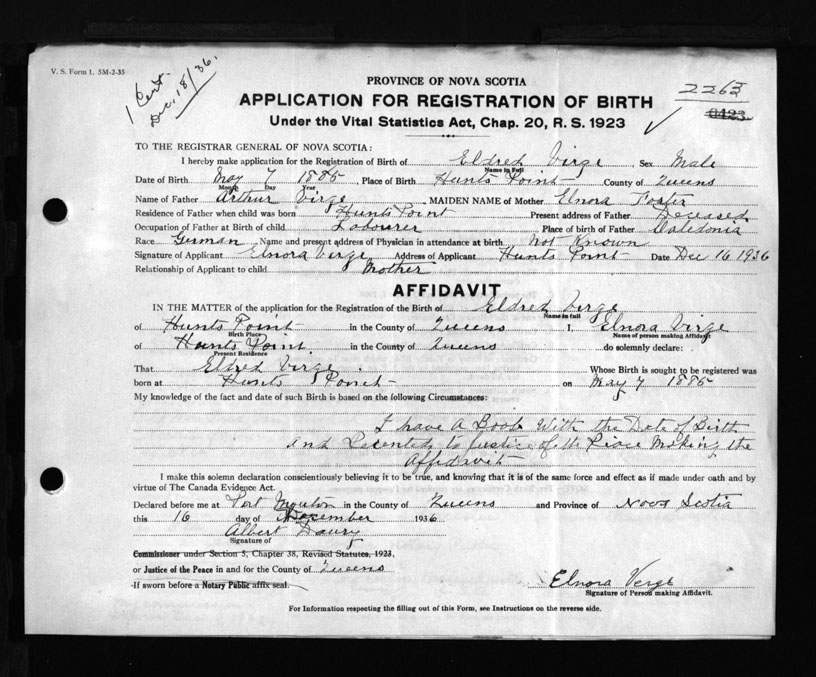 V. S. Form 1. 5M-2-35
1 Cert
Dec. 18/36.
PROVINCE OF NOVA SCOTIA
2263
APPLICATION FOR REGISTRATION OF BIRTH
0423
Under the Vital Statistics Act, Chap. 20, R. S. 1923
TO THE REGISTRAR GENERAL OF NOVA SCOTIA:
I hereby make application for the Registration of Birth of Eldred Virge, Sex Male
Name in Full
Date of Birth May 7 1885, Place of Birth Hunts Point County of Queens
Month Day Year
Name of Father Arthur Virge, MAIDEN NAME of Mother Elnora Foster
Residence of Father when child was born Hunts Point Present address of Father Deceased
Occupation of Father at Birth of child Labourer Place of birth of Father Caledonia
Race German Name and present address of Physician in attendance at birth Not Known
Signature of Applicant Elnora Virge Address of Applicant Hunts Point Date Dec 16 1936
Relationship of Applicant to child Mother
AFFIDAVIT
IN THE MATTER of the application for the Registration of the Birth of Eldred Virge
Name in full
of Hunts Point in the County of Queens I, Elnora Virge
Birth Place Name of person making Affidavit
of Hunts Point in the County of Queens do solemnly declare:
Present Residence
That Eldred Virge Whose Birth is sought to be registered was
born at Hunts Point on May 7 1885
My knowledge of the fact and date of such Birth is based on the following Circumstances:
I have A Book With the Date of Birth
and Presented to Justice of the Piece Making the
Affidavit
I make this solemn declaration conscientiously believing it to be true, and knowing that it is of the same force and effect as if made under oath and by
virtue of The Canada Evidence Act.
Declared before me at Port Mouton in the County of Queens and Province of Nova Scotia
this 16 day of December 1936
Albert Daury
Signature of
Commissioner under Section 5, Chapter 38, Revised Statutes, 1923,
or Justice of the Peace in and for the County of Queens
If sworn before a Notary Public affix seal.
Elnora Verge
Signature of Person making Affidavit.
For Information respecting the filling out of this Form, see Instructions on the reverse side.